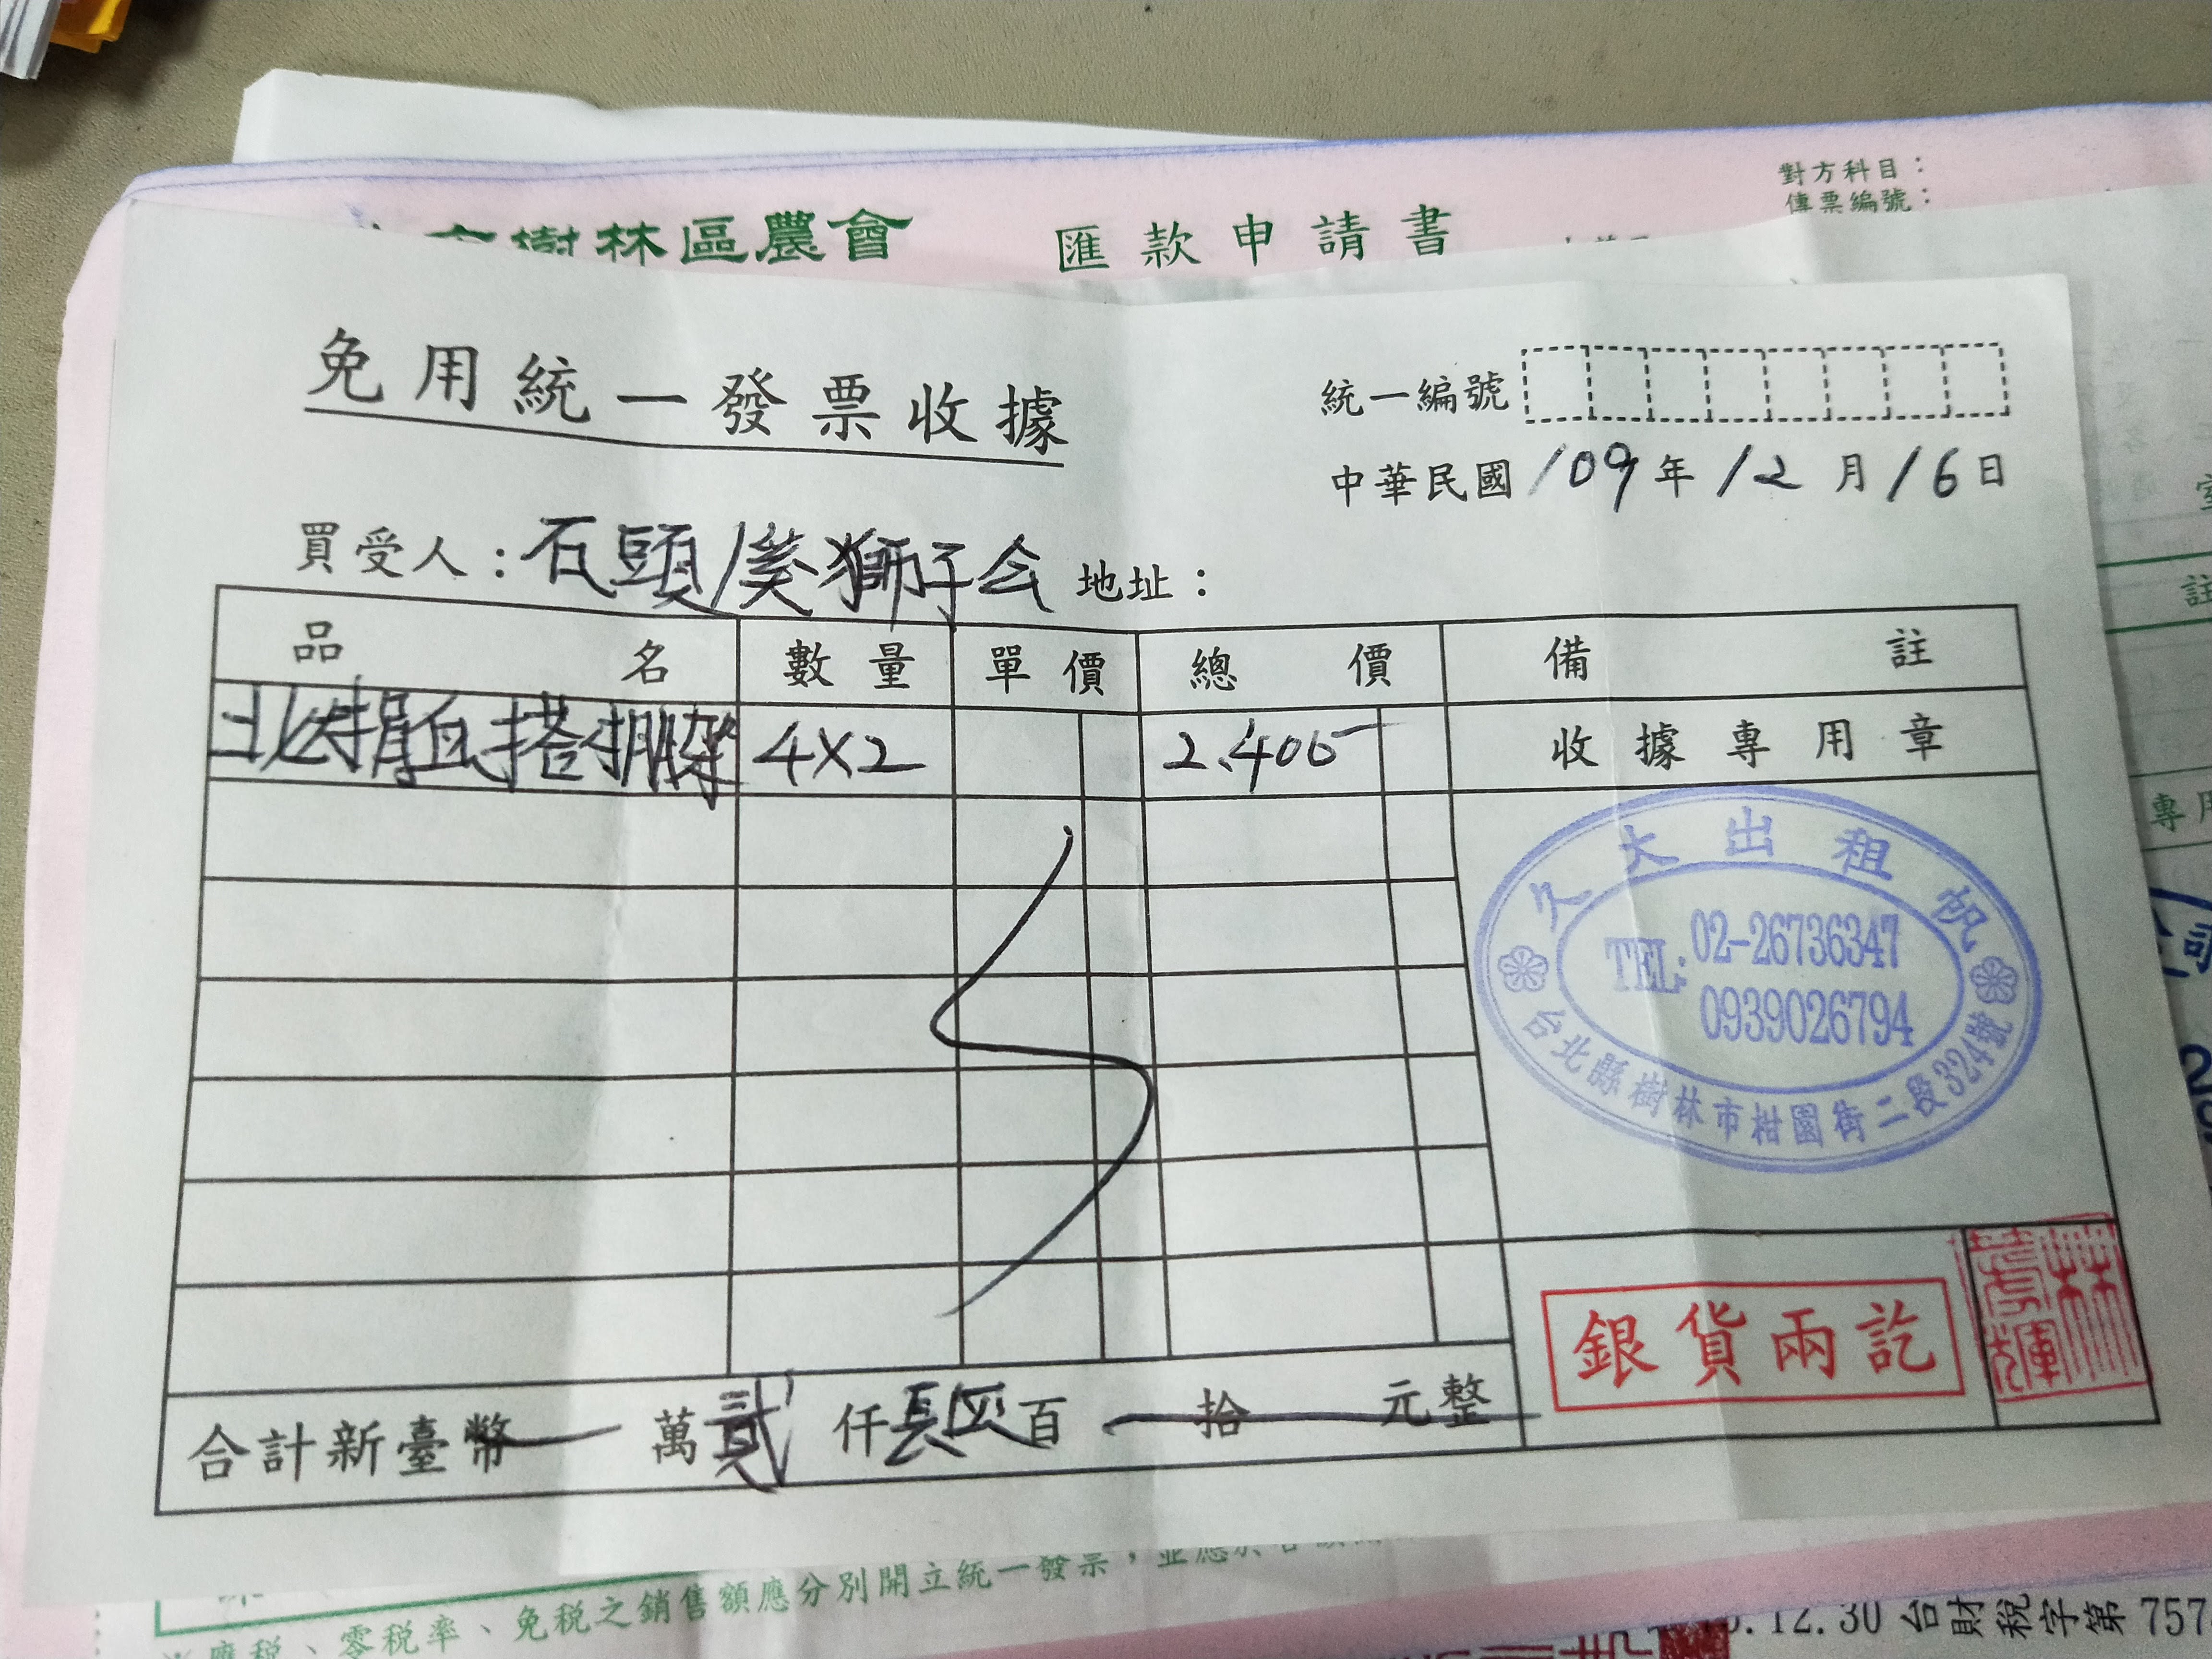 對方科目：
傳票編號：
樹林區農會 匯款申請書
免用統一發票收據
統一編號
中華民國109年12月16日
買受人：石頭 獅子会 地址：
品名 數量 單價 總價 備註
捐血搭棚架 4X2 2.400 收據專用章
久大出租帆
TEL: 02-26736347
0939026794
台北縣樹林市柑園街二段324號
銀貨兩訖
林芳輝
合計新臺幣 萬貳仟 四百 拾 元整
應稅、零稅率、免稅之銷售額應分別開立統一發票，並應於
.12.30 台財稅字第 757